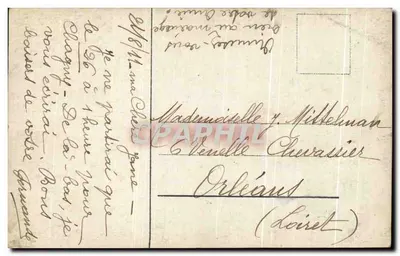 21/8/11 - ma Chère Jane -
Je ne partirai que
le 26 à 1 heure pour
Chagny - De là-bas, je
vous écrirai. Bons
baisers de votre
Armande
Amusez-vous
bien au mariage
de votre Amie !
Mademoiselle J. Mittelman
6 Venelle Chevassier
Orléans
(Loiret)
CPAPHIL